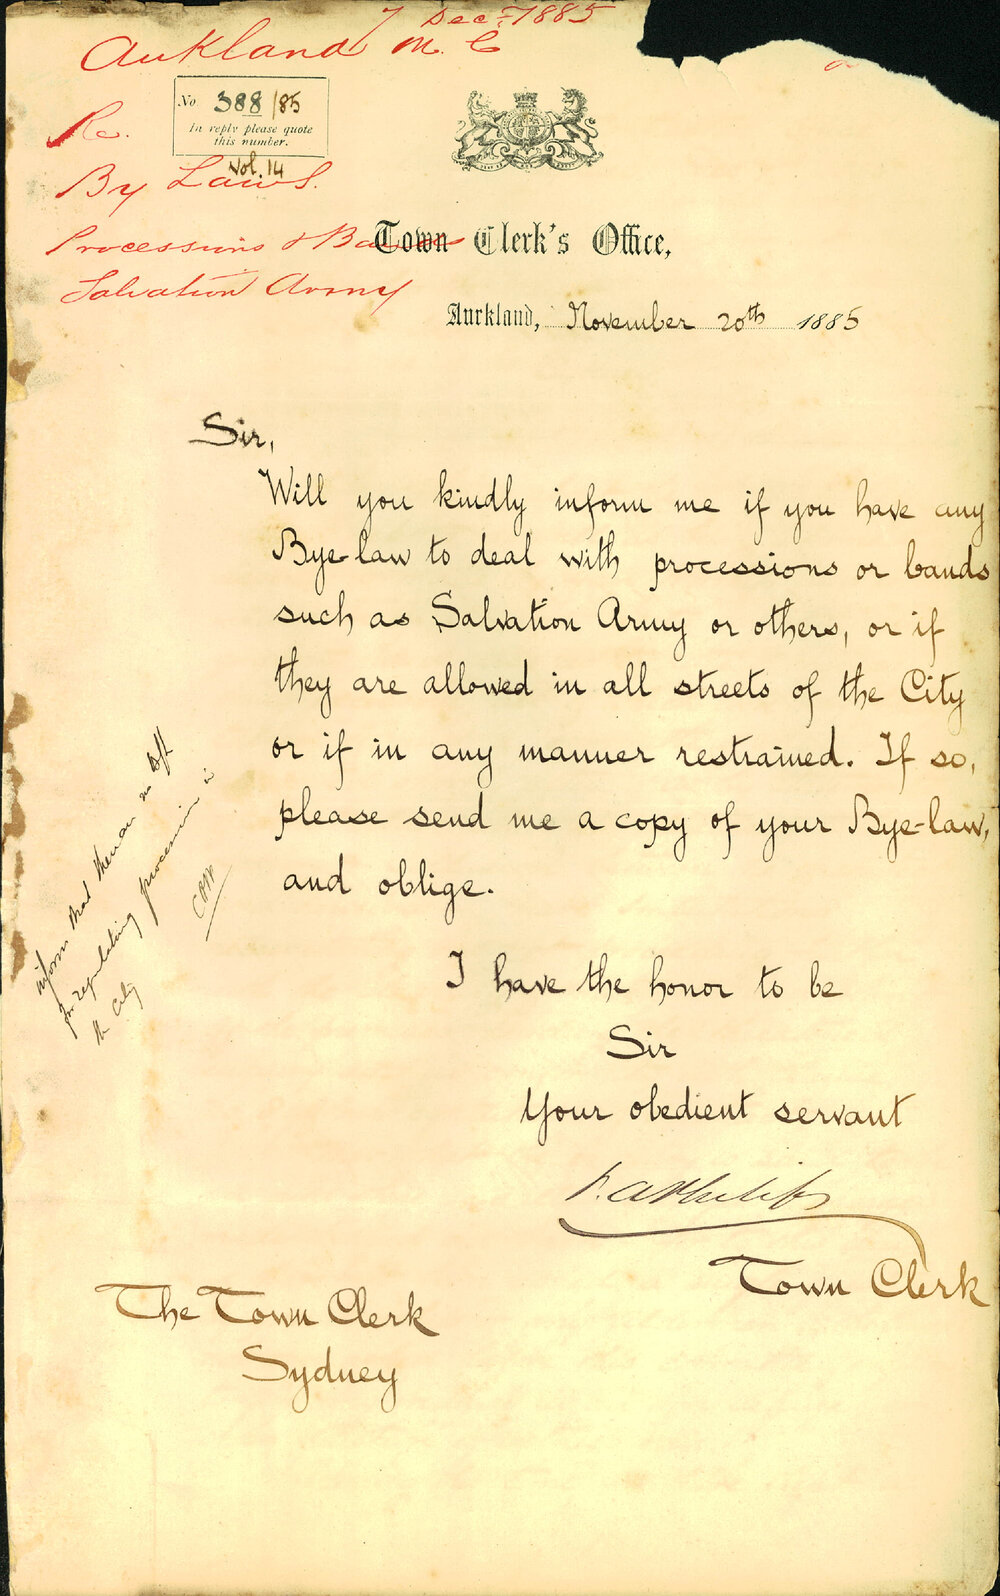 7 Dec. 1885
Aukland M. C
Re.
No. 388/85
In reply please quote
this number.
Vol. 14
By Laws.
Processions &
Salvation Army
Town Clerk's Office,
Auckland, November 20th 1885
Sir,
Will you kindly inform me if you have any
Bye-law to deal with processions or bands
such as Salvation Army or others, or if
they are allowed in all streets of the City
or if in any manner restrained. If so,
please send me a copy of your Bye-law,
and oblige.
inform that there are no
for regulating processions in
the city
I have the honor to be
Sir
Your obedient servant
P. A. Philips
Town Clerk
The Town Clerk
Sydney